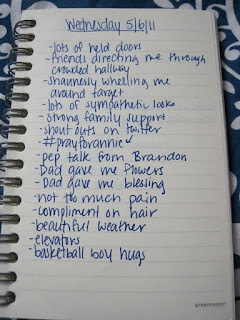 Wednesday 5/6/11
-lots of held doors
-friends directing me through
crowded hallway
-Shaunessy wheeling me
around target
-lots of sympathetic looks
-strong family support
-shout outs on twitter
-#prayforannie
-pep talk from Brandon
-Dad gave me flowers
-Dad gave me blessing
-not too much pain
-compliment on hair
-beautiful weather
-elevators
-basketball boy hugs
greenroom